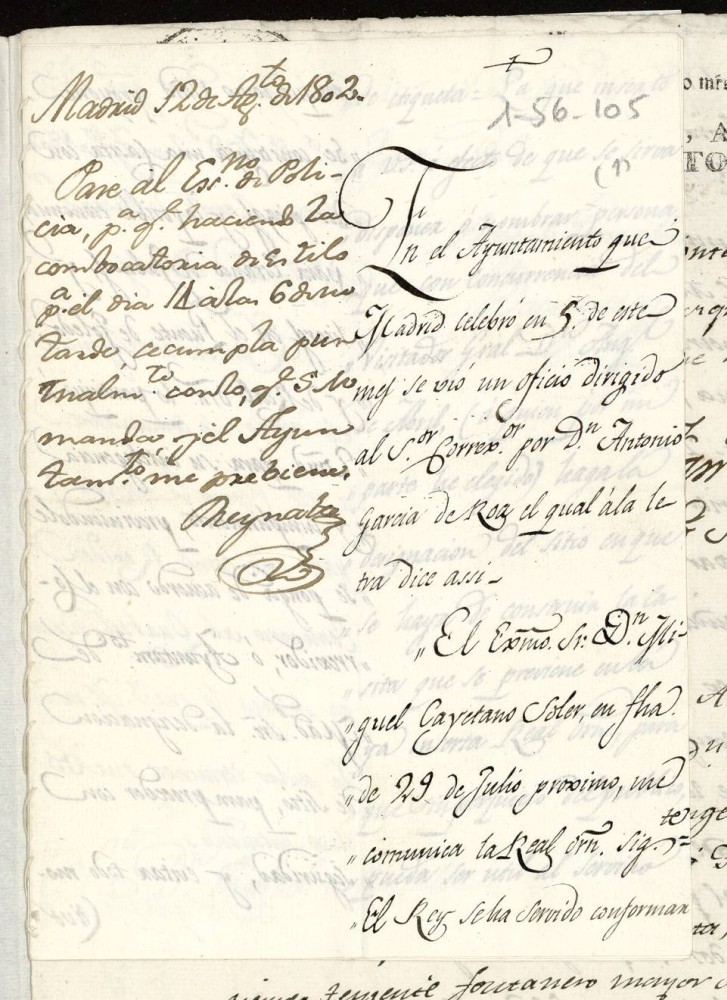 Madrid 12 de Ag.to de 1802.
Pase al Ess.no de Poli-
cia, p.a q.e haciendo la
combocatoria de estilo
p.a el dia 14 à las 6 de su
tarde, se cumpla pun
tualm.te con lo q.e S. M.
manda y el Ayun
tam.to me prebiene.
Reynalte
1-56-105
(1)
En el Ayuntamiento que
Madrid celebró en 5. de este
mes se vió un oficio dirigido
al S.or Correx.or por D.n Antonio
Garcia de Roa el qual à la le
tra dice assi -
„El Exmo. Sr. D.n Mi-
„guel Cayetano Soler, en fha.
„de 29 de Julio proximo, me
„comunica la Real orn. sig.te=
„El Rey se ha servido conforman
teniente fontanero mayor